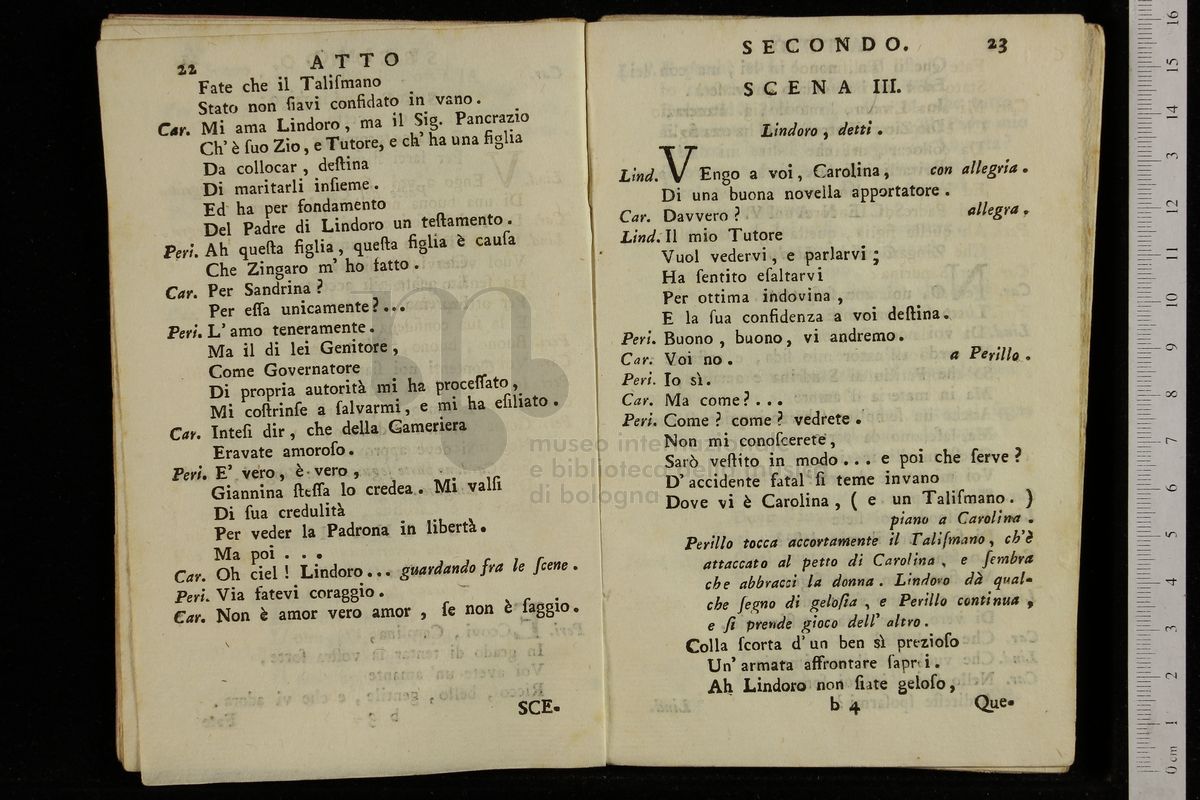 22 ATTO
Fate che il Taliſmano
Stato non ſiavi confidato in vano.
Car. Mi ama Lindoro, ma il Sig. Pancrazio
Ch' è ſuo Zio, e Tutore, e ch' ha una figlia
Da collocar, deſtina
Di maritarli inſieme.
Ed ha per fondamento
Del Padre di Lindoro un teſtamento.
Peri. Ah queſta figlia, queſta figlia è cauſa
Che Zingaro m' ho fatto.
Car. Per Sandrina?
Per eſſa unicamente?...
Peri. L' amo teneramente.
Ma il di lei Genitore,
Come Governatore
Di propria autorità mi ha proceſſato,
Mi coſtrinſe a ſalvarmi, e mi ha eſiliato.
Car. Inteſi dir, che della Cameriera
Eravate amoroſo.
Peri. E' vero, è vero,
Giannina ſteſſa lo credea. Mi valſi
Di ſua credulità
Per veder la Padrona in libertà.
Ma poi . . .
Car. Oh ciel! Lindoro... guardando fra le ſcene.
Peri. Via fatevi coraggio.
Car. Non è amor vero amor, ſe non è ſaggio.
SCE-
SECONDO. 23
SCENA III.
Lindoro, detti.
Lind. VEngo a voi, Carolina, con allegria.
Di una buona novella apportatore.
Car. Davvero? allegra.
Lind. Il mio Tutore
Vuol vedervi, e parlarvi;
Ha ſentito eſaltarvi
Per ottima indovina,
E la ſua confidenza a voi deſtina.
Peri. Buono, buono, vi andremo.
Car. Voi no. a Perillo.
Peri. Io sì.
Car. Ma come?...
Peri. Come? come? vedrete.
Non mi conoſcerete,
Sarò veſtito in modo... e poi che ſerve?
D' accidente fatal ſi teme invano
Dove vi è Carolina, (e un Taliſmano.)
piano a Carolina.
Perillo tocca accortamente il Taliſmano, ch'è
attaccato al petto di Carolina, e ſembra
che abbracci la donna. Lindoro dà qual-
che ſegno di geloſia, e Perillo continua,
e ſi prende gioco dell' altro.
Colla ſcorta d'un ben sì prezioſo
Un' armata affrontare ſaprei.
Ah Lindoro non ſiate geloſo,
b 4 Que-
museo internazionale
e biblioteca della musica
di bologna